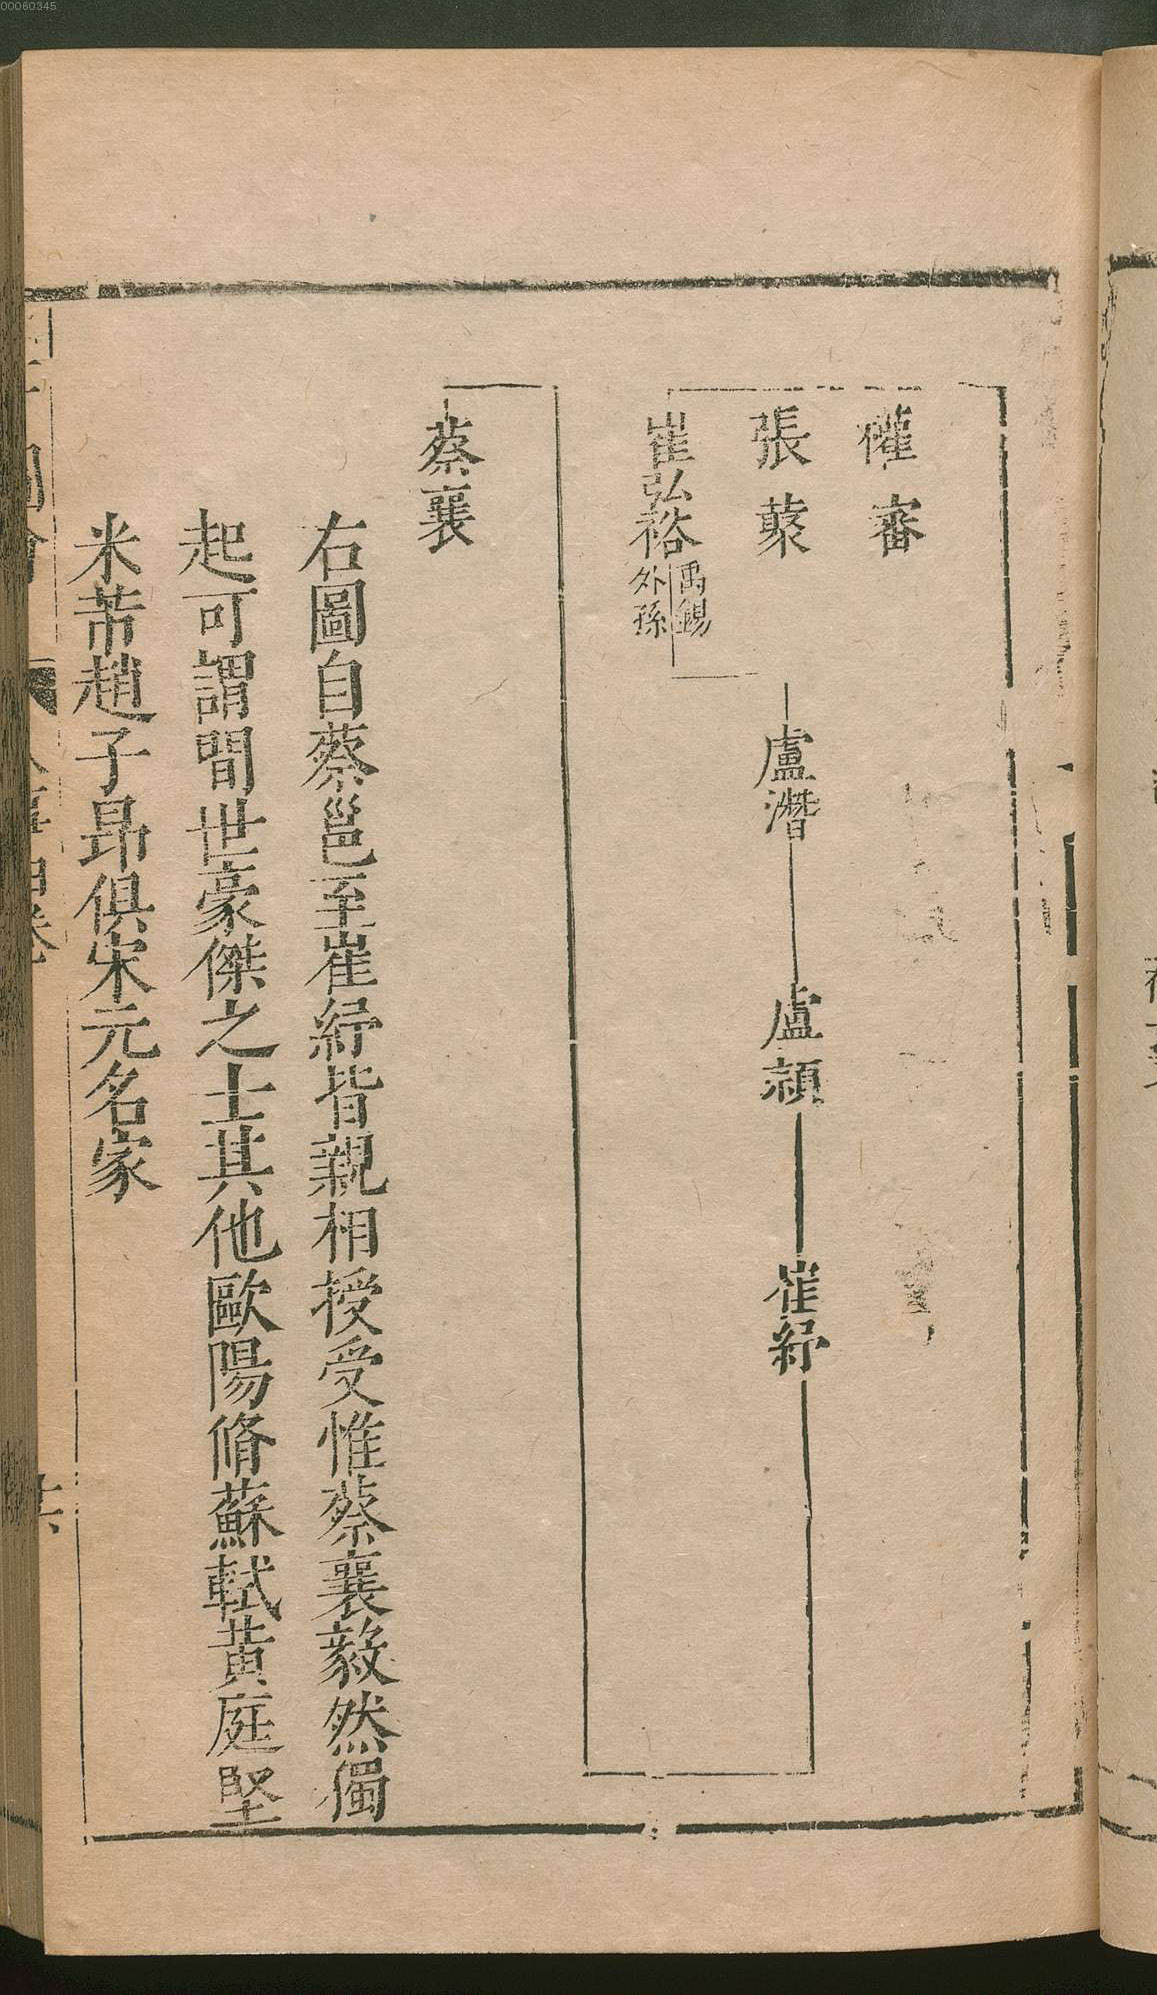 00060345
權審
張䕫
崔弘裕
禹錫
外孫
盧潛
盧頴
崔紓
蔡襄
右圖自蔡邕至崔紓皆親相授受惟蔡襄毅然獨
起可謂間世豪傑之士其他歐陽脩蘇軾黃庭堅
米芾趙子昂俱宋元名家